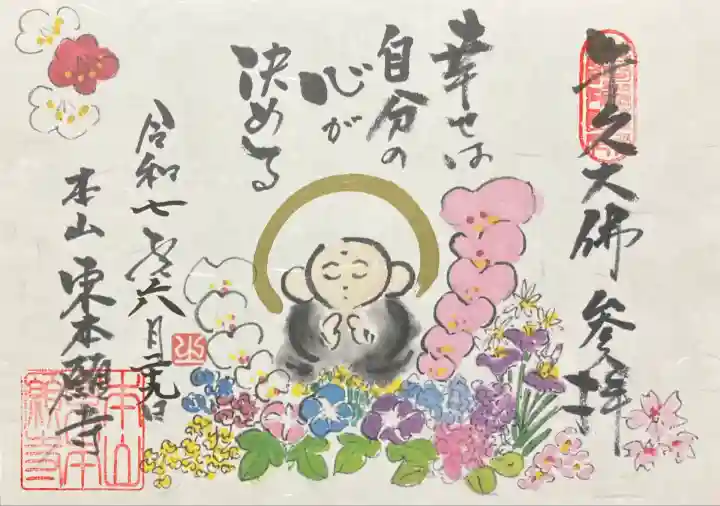 牛久大佛 参拝
幸せは
自分の
心が
決める
令和七年六月二十九日
本山 東本願寺